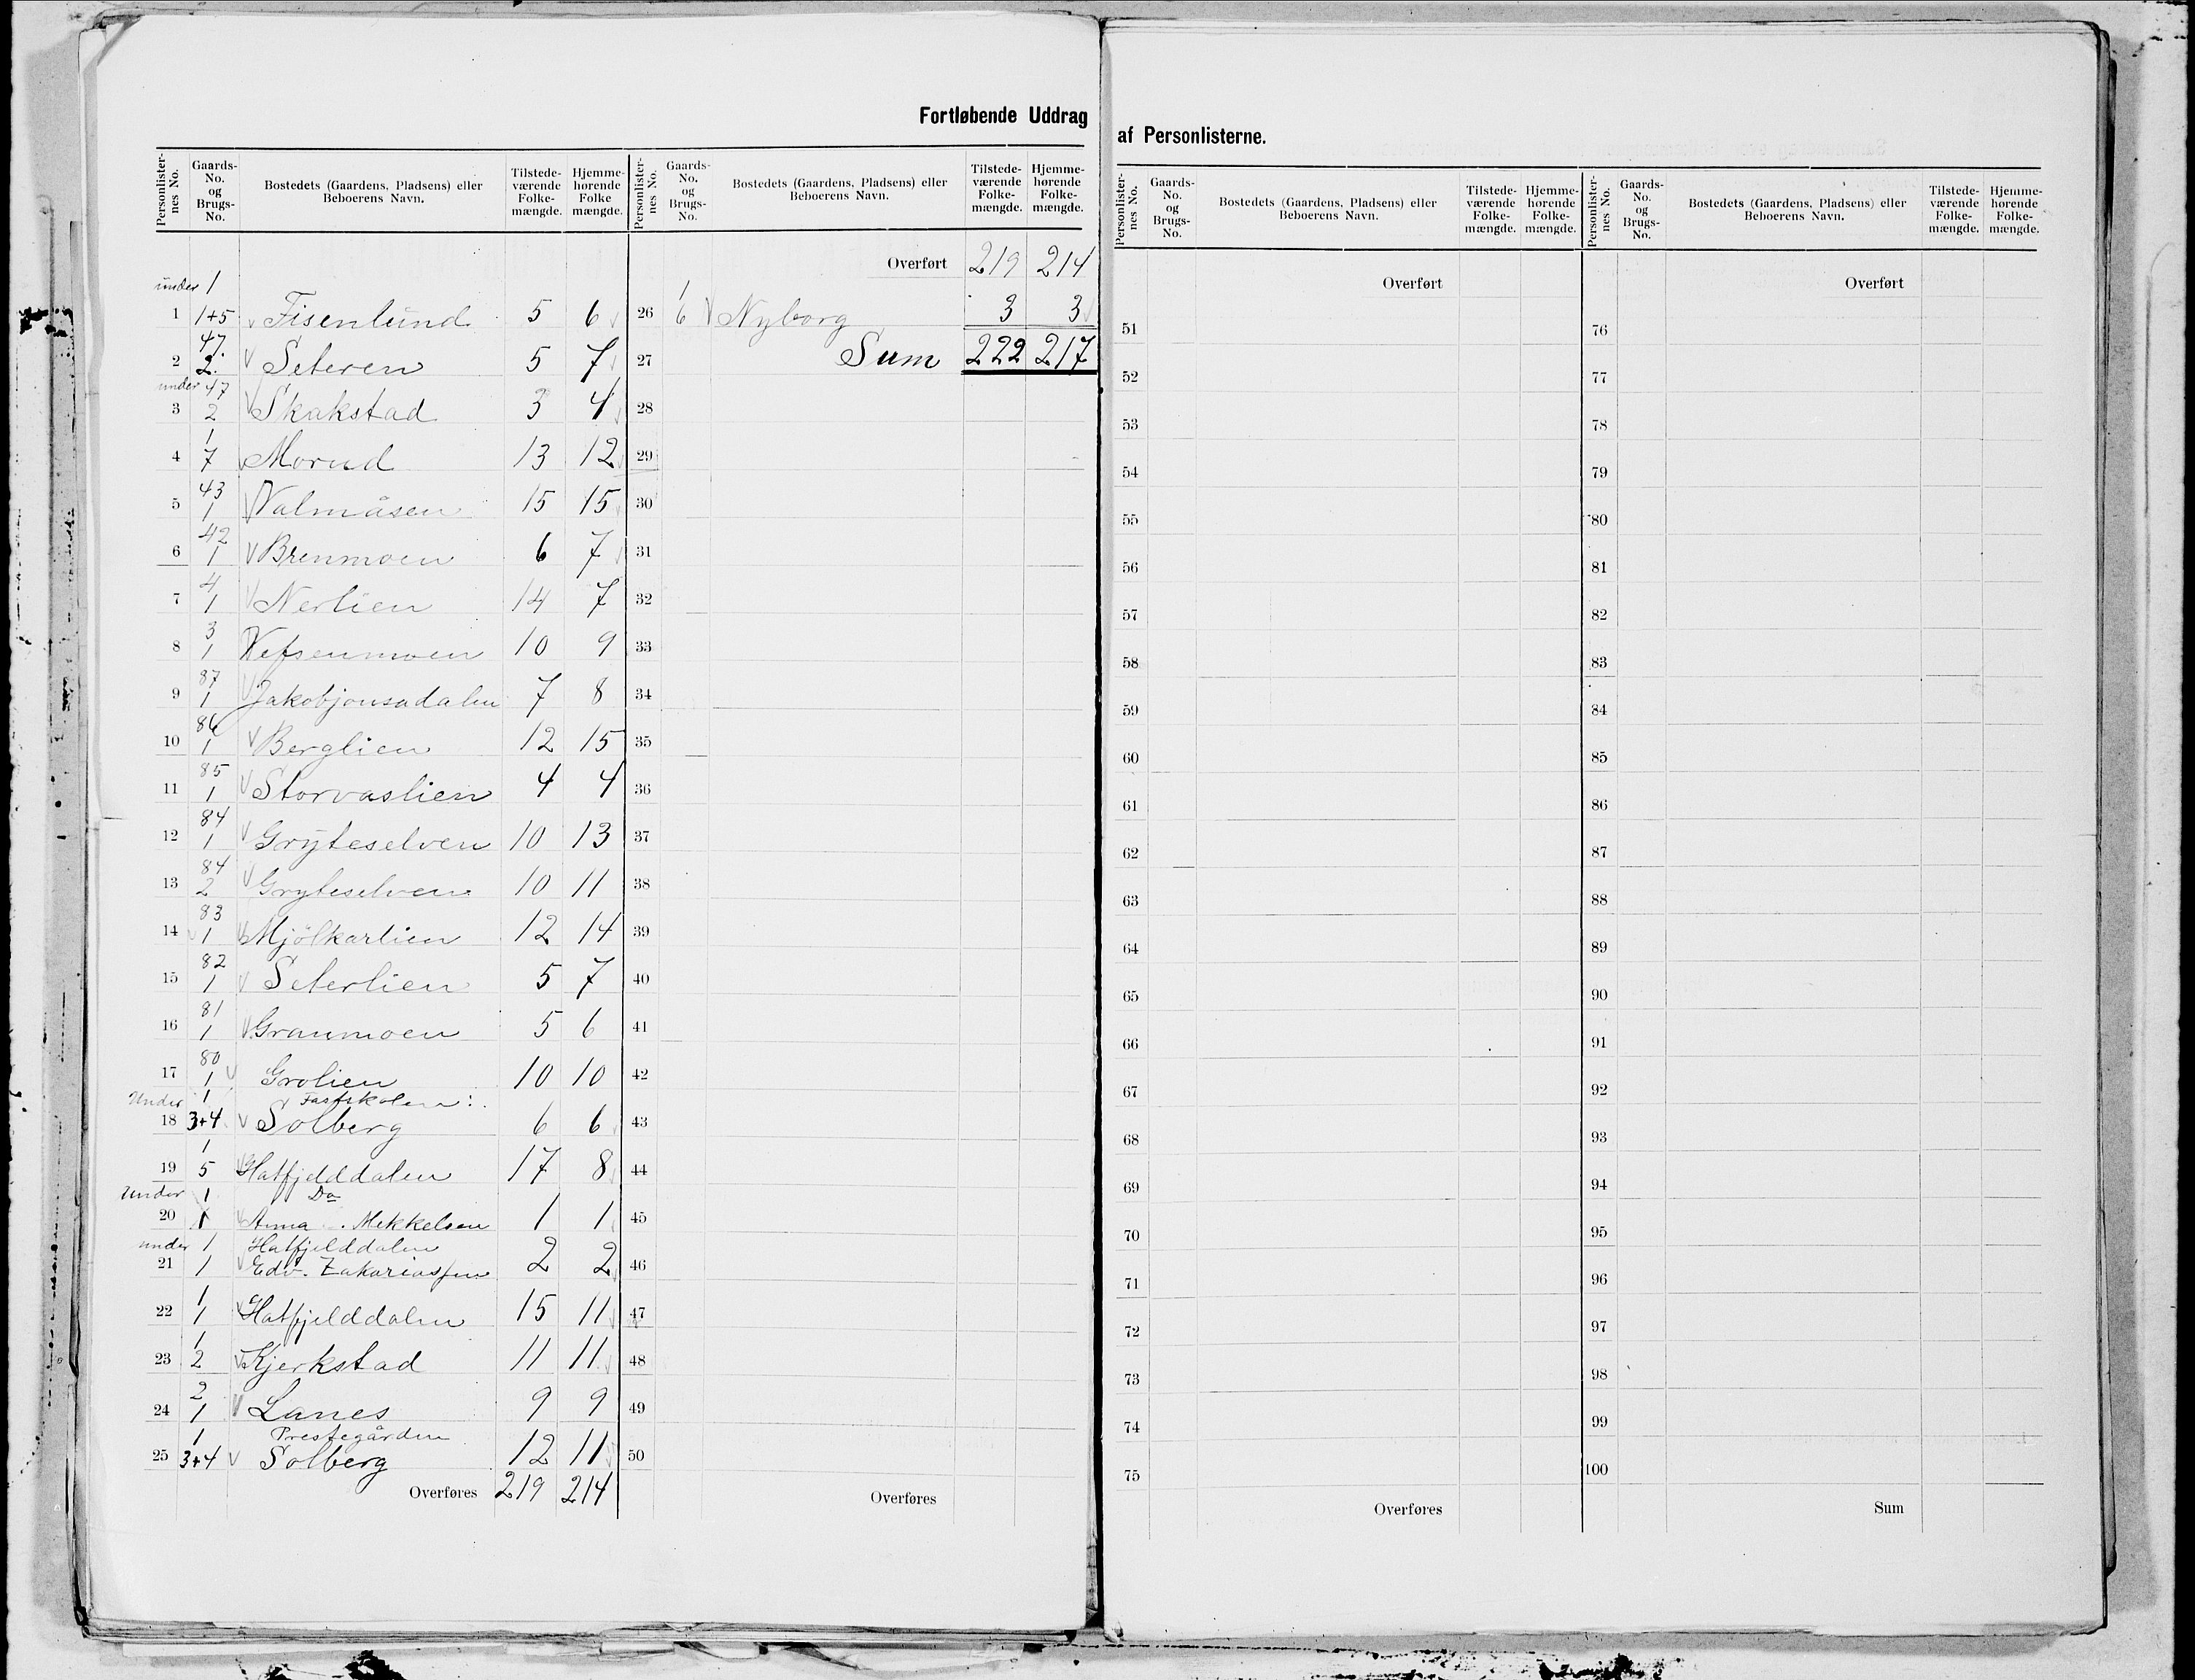 Fortløbende Uddrag
af Personlisterne.
Personlister-nes No. Gaards-No. og Brugs-No. Bostedets (Gaardens, Pladsens) eller Beboerens Navn. Tilstede-værende Folke-mængde. Hjemme-hørende Folke mængde.
Personlister-nes No. Gaards-No. og Brugs-No. Bostedets (Gaardens, Pladsens) eller Beboerens Navn. Tilstede-værende Folke-mængde. Hjemme-hørende Folke-mængde.
under 1
1 1+5 Fisenlund 5 6
47
2 2 Seteren 5 7
under 47
3 2 Skakstad 3 4
1
4 7 Morud 13 12
43
5 1 Valmåsen 15 15
42
6 1 Brenmoen 6 7
4
7 1 Nerlien 14 7
3
8 1 Vefsenmoen 10 9
87
9 1 Jakobjonsadalen 7 8
86
10 1 Berglien 12 15
85
11 1 Storvaslien 4 4
84
12 1 Gryteselven 10 13
84
13 2 Gryteselven 10 11
83
14 1 Mjölkarlien 12 14
82
15 1 Seterlien 5 7
81
16 1 Granmoen 5 6
80
17 1 Grolien 10 10
Under 1 Fastskolen :
18 3+4 Solberg 6 6
1
19 5 Hatfjelddalen 17 8
Under 1 Do
20 1 Anna Mekkelsen 1 1
under 1 Hatfjelddalen
21 1 Edv. Zakariassen 2 2
1
22 1 Hatfjelddalen 15 11
1
23 2 Kjerkstad 11 11
2
24 1 Lanes 9 9
1 Prestegården
25 3+4 Solberg 12 11
Overføres 219 214
Overført 219 214
1
26 6 Nyborg 3 3
27 Sum 222 217
28
29
30
31
32
33
34
35
36
37
38
39
40
41
42
43
44
45
46
47
48
49
50
Overføres
Personlister-nes No. Gaards-No. og Brugs-No. Bostedets (Gaardens, Pladsens) eller Beboerens Navn. Tilstede-værende Folke-mængde. Hjemme-hørende Folke-mængde.
Personlister-nes No. Gaards-No. og Brugs-No. Bostedets (Gaardens, Pladsens) eller Beboerens Navn. Tilstede-værende Folke-mængde. Hjemme-hørende Folke-mængde.
Overført
51
52
53
54
55
56
57
58
59
60
61
62
63
64
65
66
67
68
69
70
71
72
73
74
75
Overføres
Overført
76
77
78
79
80
81
82
83
84
85
86
87
88
89
90
91
92
93
94
95
96
97
98
99
100
Sum